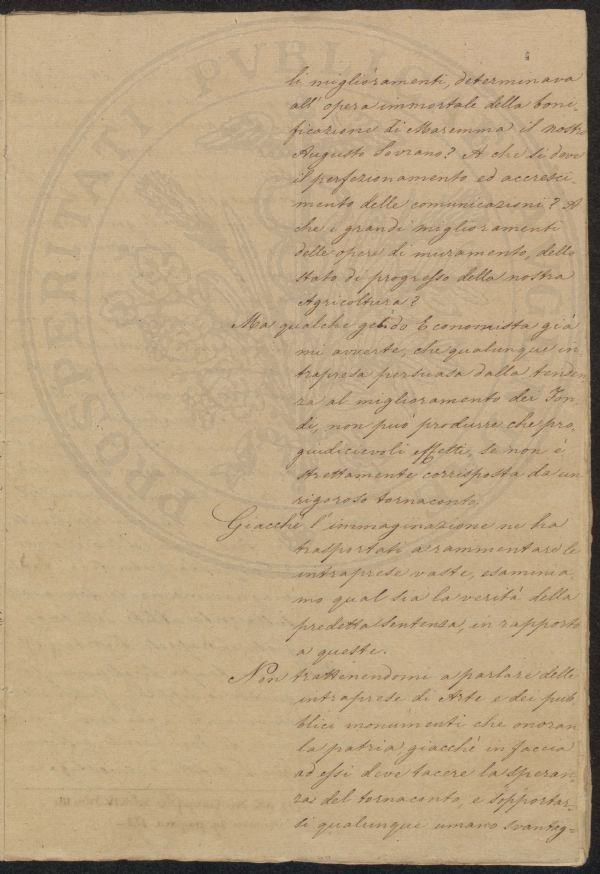 li miglioramenti, determinava
all'opera immortale della boni,
ficazione di Maremma il nostro
Augusto Sovrano? A che si dove
il perfezionamento ed accresci,
mento delle comunicazioni? A
che i grandi miglioramenti
delle opere di muramento, dello
stato di progresso della nostra
Agricoltura?
Ma qualche gelido Economista già
mi avverte, che qualunque in,
trapresa persuasa dalla tenden,
za al miglioramento dei Fon,
di, non può produrre che pre,
giudicievoli effetti, se non è
strettamente corrisposta da un
rigoroso tornaconto.
Giacchè l'immaginazione ne ha
trasportati a rammentare le
intraprese vaste, esaminia,
mo qual sia la verità della
predetta sentenza, in rapporto
a queste.
Non trattenendomi a parlare delle
intraprese di Arte e dei pub,
blici monumenti che onoran
la patria giacchè in faccia
ad essi deve tacere la speran,
za del tornaconto, e sopportar,
si qualunque umano svantag=
PROSPERITATI PVBLIC